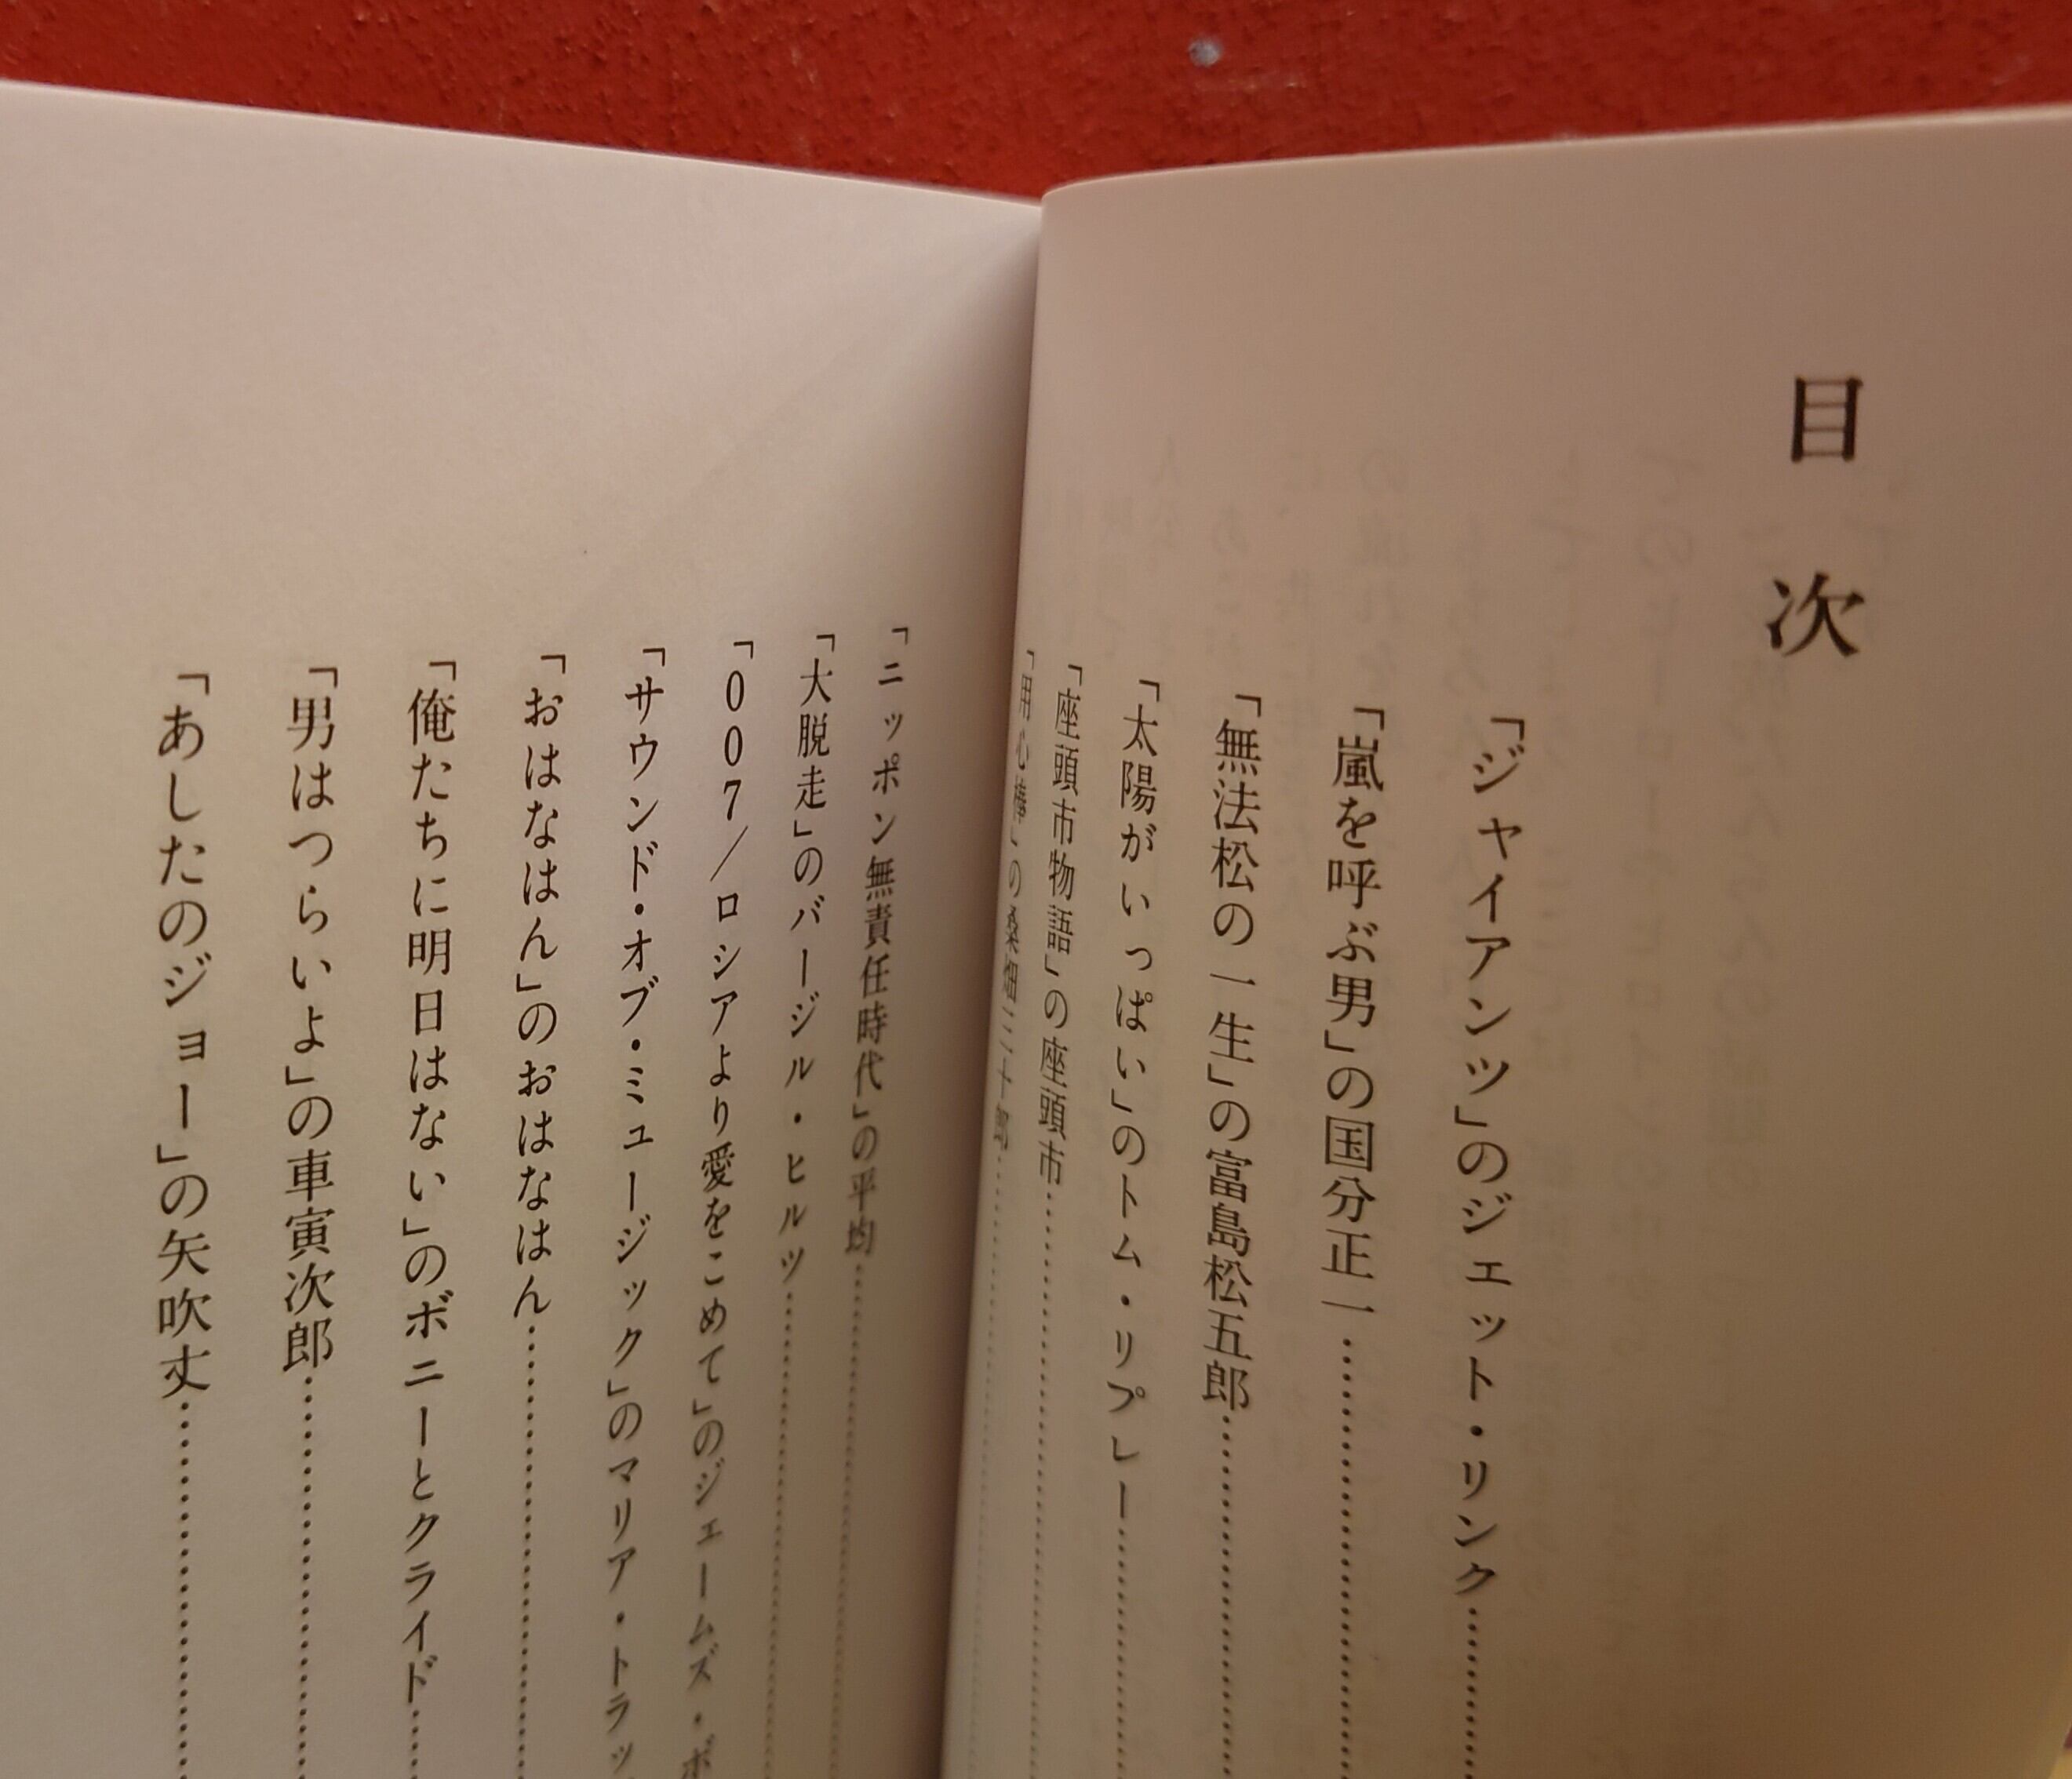 目次
「ジャイアンツ」のジェット・リンク
「嵐を呼ぶ男」の国分正一
「無法松の一生」の富島松五郎
「太陽がいっぱい」のトム・リプレー
「座頭市物語」の座頭市
「用心棒」の桑畑三十郎
「ニッポン無責任時代」の平均
「大脱走」のバージル・ヒルツ
「007/ロシアより愛をこめて」のジェームズ・ボ
「サウンド・オブ・ミュージック」のマリア・トラッ
「おはなはん」のおはなはん
「俺たちに明日はない」のボニーとクライド
「男はつらいよ」の車寅次郎
「あしたのジョー」の矢吹丈